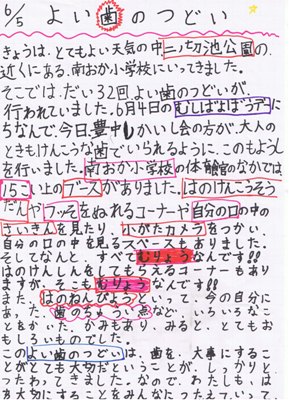 6/5 よい歯のつどい
きょうは、とてもよい天気の中二ノ切池公園の
近くにある、南おか小学校にいってきました。
そこでは、だい32回よい歯のつどいが、
行われていました。6月4日のむしばよぼうデーに
ちなんで、今日、豊中しかいし会の方が、大人の
ときもけんこうな歯でいられるように、このもよおし
を行いました。南おか小学校の体育館のなかでは
15こい上のブースがありました。はのけんこうそう
だんやフッそをぬれるコーナーや自分の口の中の
さいきんを見たり、小がたカメラをつかい、
自分の口の中を見るスペースもありました。
そしてなんと、すべてむりょうなんです!!
はのけんしんをしてもらえるコーナーもあり
ますが、そこもむりょうなんです!!
また、はのねんぴょうといって、今の自分に
あった、歯のちゅうい点など、いろいろなこ
とをかいた、かみもあり、みると、とてもお
もしろいものでした。
このよい歯のつどいは、歯を、大事にするこ
とがとても大切だということが、しっかりと
つたわってきました。なので、わたしも、は
を大切にすることをみんなにつたえていって、